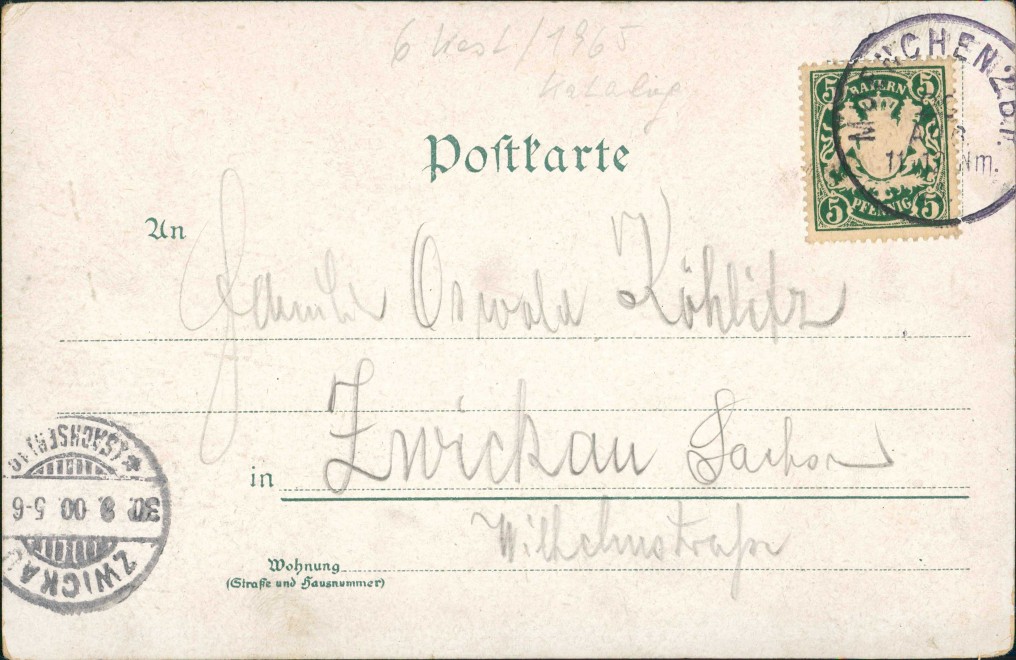 6 Kart / 1965
Katalog
MÜNCHEN 2 B.P.
11-12 Nm.
5 BAYERN 5
5 PFENNIG 5
Postkarte
An
Familie Oswald Köhlitz
in Zwickau Sachsen
Wilhelmstraße
Wohnung
(Straße und Hausnummer)
* (SACHSEN) 1a
30. 8. 00. 5-6
ZWICKAU